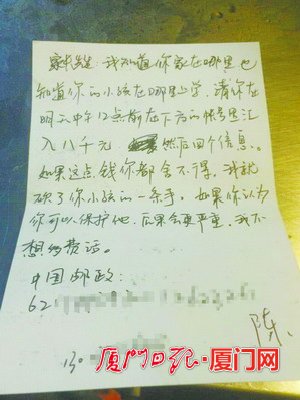 我知道你家在哪里也
知道你的小孩在哪里上学,请你在
明天中午12点前在下方的帐号里汇
入八千元 然后回个信息。
如果这点钱你都舍不得,我就
砍了你小孩的一条手,如果你认为
你可以保护他,后果会更严重,我不
想多费话。
中国邮政:
62
陈
130
厦门日报·厦门网